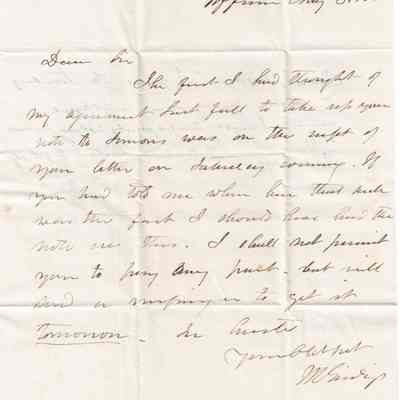 May
Dear Sir
The first I had thought of
my agreement last fall to take up your
note to Simons was on the receipt of
your letter on Saturday evening. If
you had told me when here that such
was the fact I should have had the
note by this. I shall not permit
you to pay any part - but will
send a messenger to get it
tomorrow. In haste
Your Obt Svt